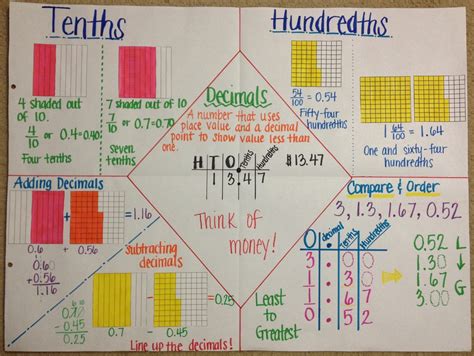 Tenths
4 shaded out
of 10.
4/10 or 0.4=0.40
Four tenths
7 shaded out of 10
7/10 or 0.7=0.70
Seven
tenths
Hundredths
54/100 = 0.54
Fifty-four
hundredths
1 64/100 = 1.64
One and sixty-four
hundredths
Decimals
A number that uses
place value and a decimal
point to show value less than
one.
H T O . Tenths Hundredths
1 3 . 4 7
$13.47
Think of
money!
Adding Decimals
+ = 1.16
0.6 + 0.56
0.60
+0.56
1.16
Subtracting
decimals
- = 0.25
0.7 - 0.45
0.70
-0.45
0.25
Line up the decimals!
Compare & Order
3, 1.3, 1.67, 0.52
O decimal Tenths Hundredths
3 . 0 0
1 . 3 0
1 . 6 7
0 . 5 2
0.52 L
1.30
1.67 G
3.00
Least to
Greatest